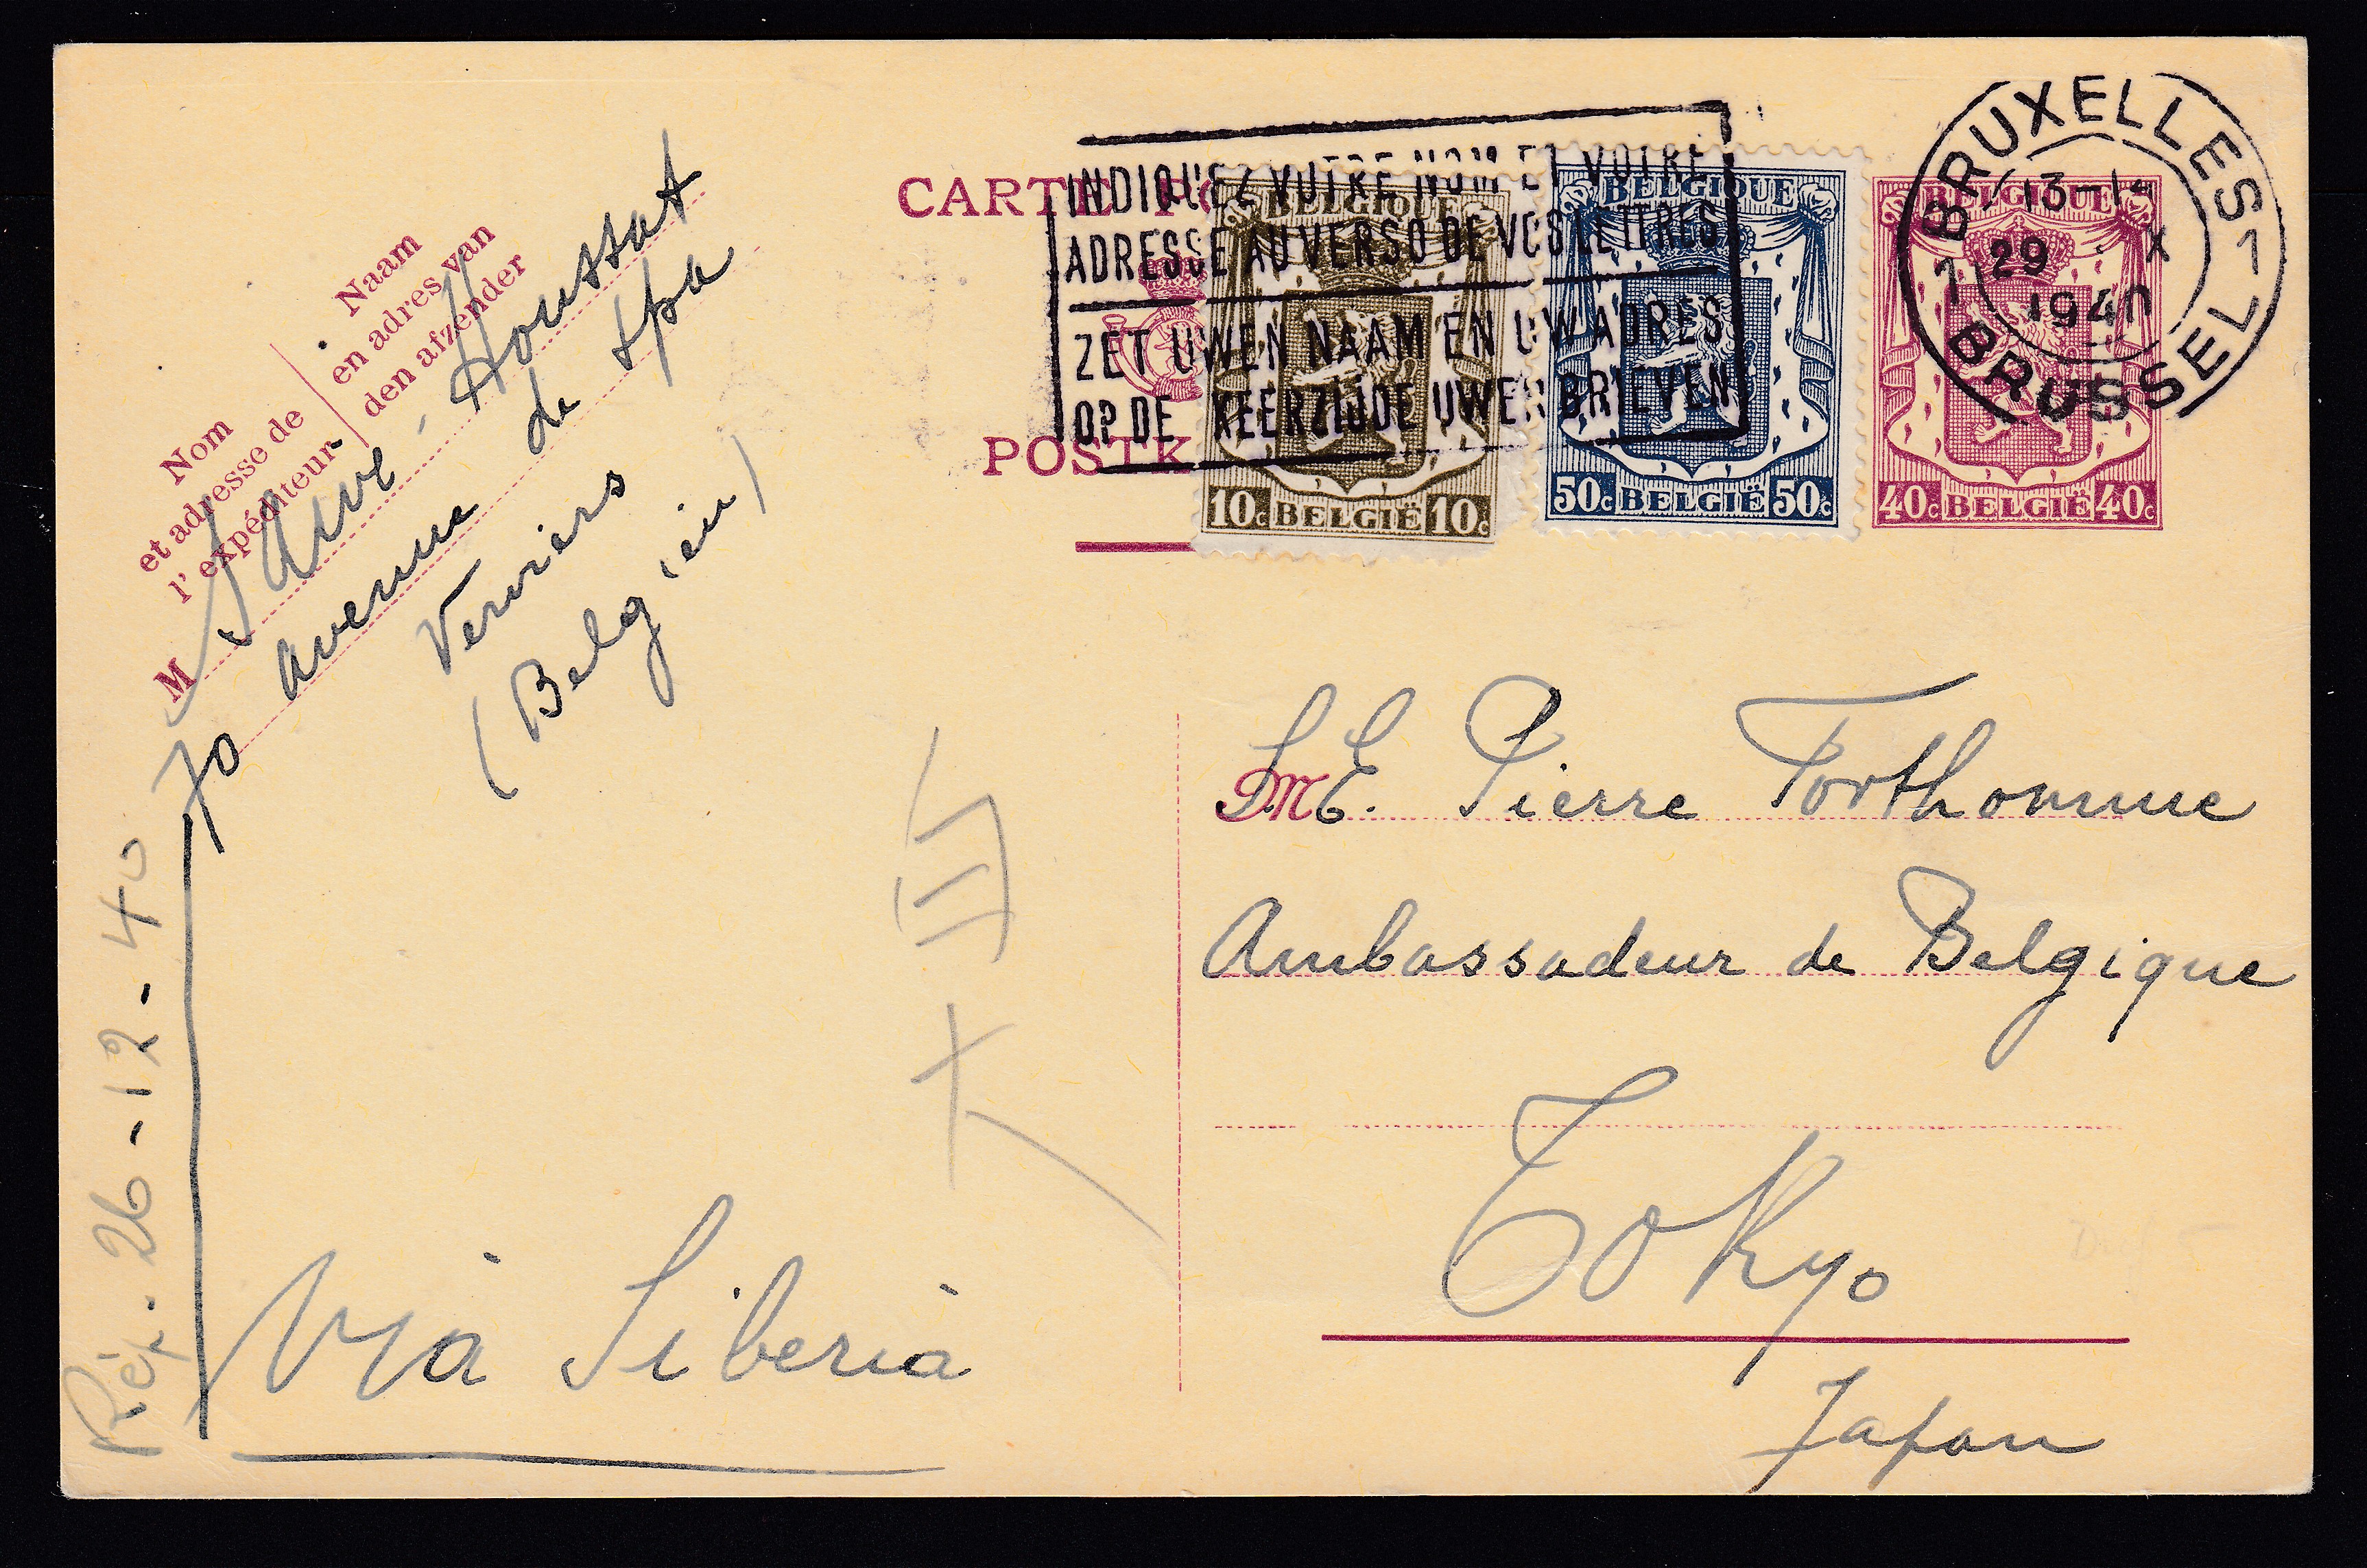 Naam
en adres van
den afzender
Nom
et adresse de
l'expéditeur
M Sauve-Houssat
70 avenue de Spa
Verviers
(Belgien)
CARTE
POSTK
INDIQUEZ VOTRE NOM ET VOTRE
ADRESSE AU VERSO DE VOS LETTRES
ZET UWEN NAAM EN UW ADRES
OP DE KEERZIJDE UWER BRIEVEN
BELGIQUE
10c BELGIË 10c
BELGIQUE
50c BELGIË 50c
BELGIQUE
40c BELGIË 40c
1 BRUXELLES 1
13-14
29 X
1940
BRUSSEL
S.E. Pierre Forthomme
Ambassadeur de Belgique
Tokyo
Japan
Via Siberia
Rép. 26-12-40